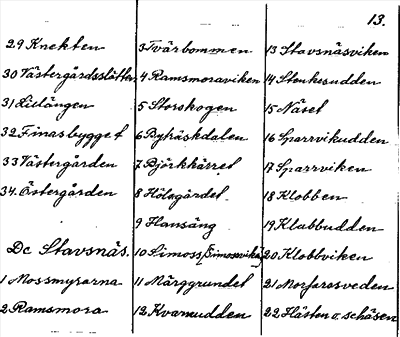 13.
29 Knekten
30 Västergårdsslätten
31 Lillängen
32 Finasbygget
33 Västergården
34. Östergården
Dc Stavsnäs.
1 Mossmyrarna
2 Ramsmora
3 Tvärbommen
4 Ramsmoraviken
5 Storskogen
6 Byträskdalen
7 Björkkärret
8 Hölsgärdet
9 Hansäng
10 Simoss(Simossvika)
11 Märggrundet
12 Kvarnudden
13 Stavsnäsviken
14 Stenkesudden
15 Näset
16 Sparrvikudden
17 Sparrviken
18 Klobben
19 Klubbudden
20 Klobbviken
21 Morfarsveden
22 Hästen o. schäsen